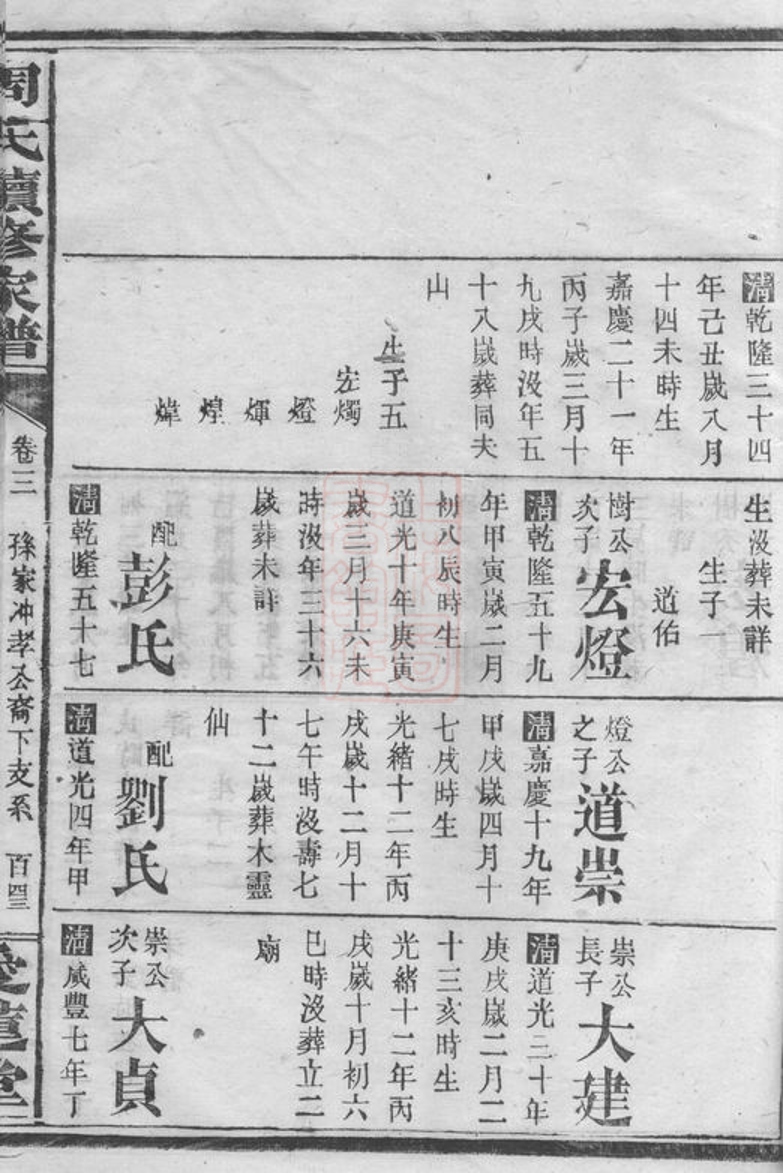 清乾隆三十四
年己丑歲八月
十四未時生
嘉慶二十一年
丙子歲三月十
九戌時沒年五
十八歲葬同夫
山
生子五
宏燭
燈
煇
煌
煒
生沒葬未詳
生子一
道佑
樹公
次子
宏燈
清乾隆五十九
年甲寅歲二月
初八辰時生
道光十年庚寅
歲三月十六未
時沒年三十六
歲葬未詳
配
彭氏
清乾隆五十七
燈公
之子
道崇
清嘉慶十九年
甲戌歲四月十
七戌時生
光緒十二年丙
戌歲十二月十
七午時沒壽七
十二歲葬木靈
仙
配
劉氏
清道光四年甲
崇公
長子
大建
清道光三十年
庚戌歲二月二
十三亥時生
光緒十二年丙
戌歲十月初六
巳時沒葬立二
廟
崇公
次子
大貞
清咸豐七年丁
周氏續修家譜
卷三
孫家冲孝公裔下支系
百四三
愛蓮堂